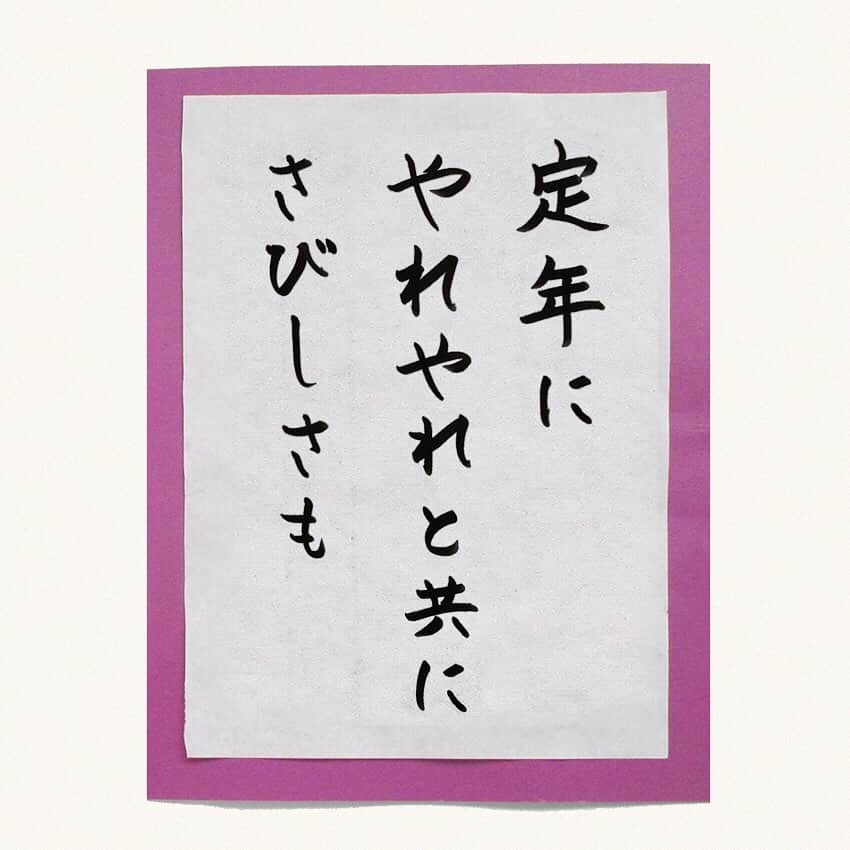 定年に
やれやれと共に
さびしさも